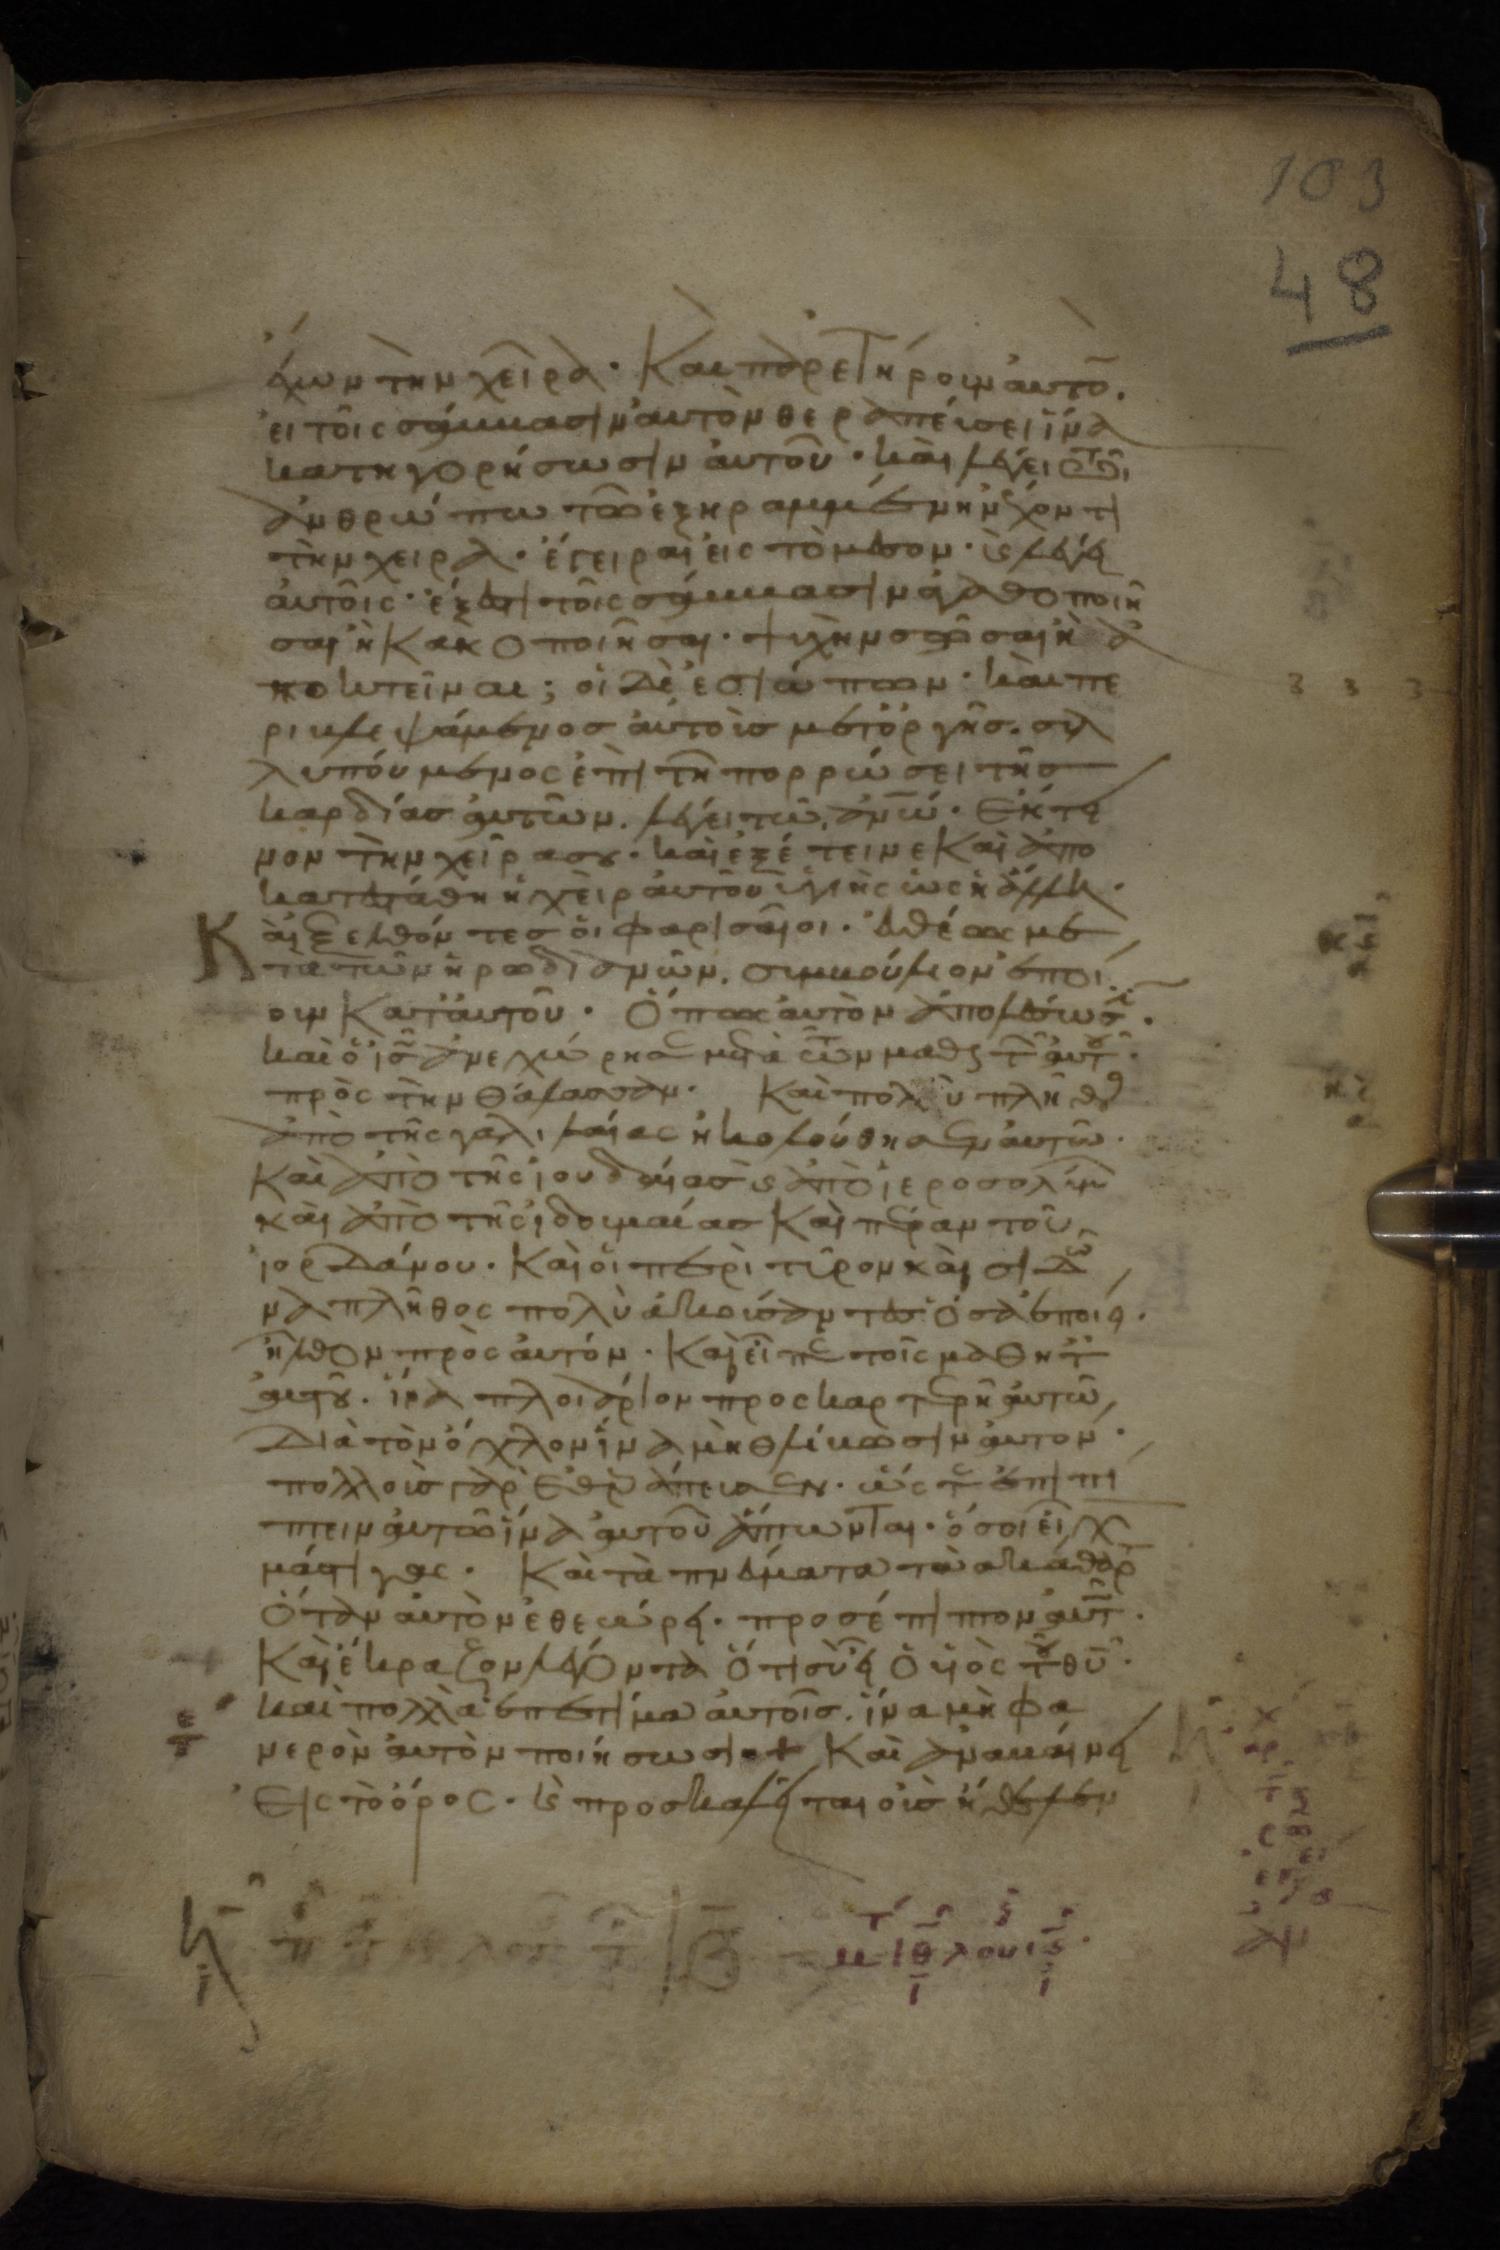 103
48
ἔχων τὴν χεῖρα. Και παρετήρουν αυτὸ.
εἰ τοῖς σάββασιν αυτὸν θεραπεύσει ἵνα
κατηγορήσωσιν αυτοῦ. και λέγει τῶ
ἀνθρώπω τῶ ἐξηραμμένην ἔχοντι
τὴν χειρα. ἔγειραι εἰς τὸ μέσον. καὶ λέγει
αυτοῖς. ἔξεστι τοῖς σάββασιν ἀγαθοποιῆ
σαι ἢ Κακοποιῆσαι. ψυχὴν σῶσαι ἢ ἀ
ποκτεῖναι; οἱ δὲ ἐσιώπων. και πε
ριβλεψάμενος αὐτοὺς μετ ὀργῆς. συλ
λυπούμενος ἐπὶ τῆ πορρώσει τῆς
καρδίας αυτῶν. λέγει τῶ ἀνῶ. Εκτει
νον τὴν χεῖρα σου. και ἐξέτεινε Και ἀπο
κατεστάθη ἡ χεὶρ αυτοῦ ὑγιὴς ὡς ἡ ἄλλη.
Και ἐξελθόντες οἱ φαρισαῖοι. ευθέως με
τὰ τῶν ἡρωδιανῶν. συμβούλιον ἐποί
ουν Κατ αυτοῦ. Ὅπως αυτὸν ἀπολέσωσι.
και ὁ ις ἀνεχώρησε μετὰ τῶν μαθητῶν αυτοῦ
πρὸς τὴν θάλασσαν. Και πολὺ πλῆθος
ἀπὸ τῆς γαλιλαίας ἠκολούθησαν αυτῶ.
Και ἀπὸ τῆς ἰουδαίας καὶ ἀπὸ ἱεροσολύμων
και ἀπὸ τῆς ἰδουμαίας Και πέραν τοῦ
ἰορδάνου. Και οἱ περὶ τύρον και σιδῶ
να πλῆθος πολὺ ἀκούσαντες ὅσα ἐποίει.
ἦλθον πρὸς αυτόν. Και εἶπε τοῖς μαθητ
αυτοῦ. ἵνα πλοιάριον προσκαρτερῆ αυτῶ
Διὰ τὸν ὄχλον ἵνα μὴ θλίβωσιν αυτον.
πολλοὺς γὰρ Ἐθεράπευσεν. ὥστε ἐπιπί
πτειν αυτῶ ἵνα αυτοῦ ἅπτωνται. ὅσοι εἶχ
μάστιγας. Και τὰ πνεύματα τὰ ἀκάθαρ
Ὅταν αυτὸν ἐθεώρει. προσέπιπτον αυτ.
Και ἔκραζον λέγοντα Ὅτι σὺ εἶ Ὁ υἱὸς τοῦ θυ.
και πολλὰ ἐπετίμα αυτοῖς. ἵνα μὴ φα
νερὸν αυτὸν ποιήσωσι + Και ἀναβαίνει
Εἰς τὸ ὄρος. καὶ προσκαλεῖται οὓς ἤθελεν